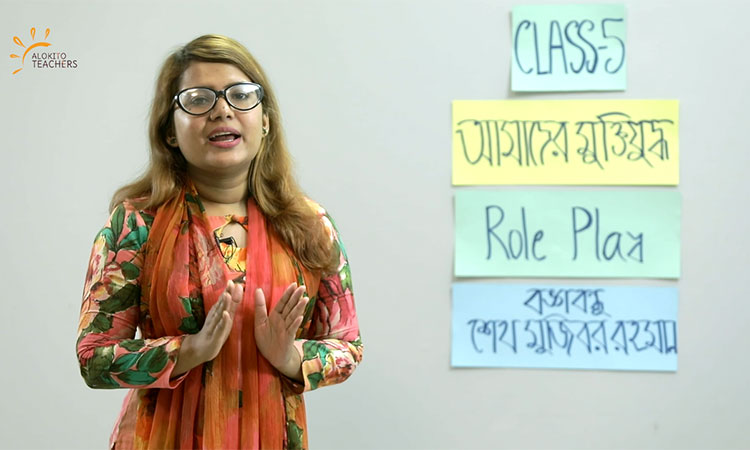 ALOKITO
TEACHERS
CLASS-5
আমাদের মুক্তিযুদ্ধ
Role Play
বঙ্গবন্ধু
শেখ মুজিবর রহমান